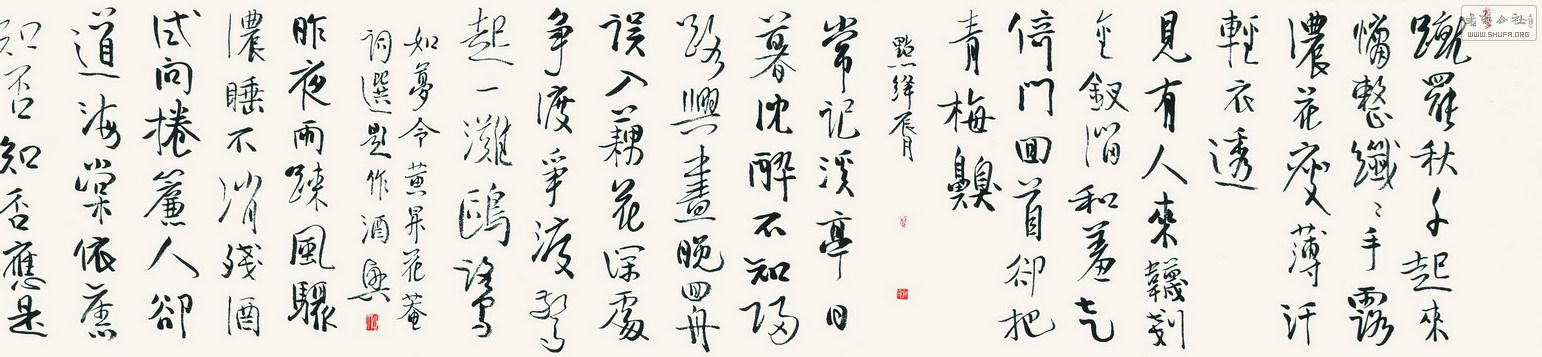 蹴罷秋千起來
慵整纖〻手露
濃花瘦薄汗
輕衣透
見有人來韈剗
金釵溜和羞走
倚門回首卻把
青梅嗅
點絳脣
常記溪亭日
暮沈醉不知歸
路興盡晚回舟
誤入藕花深處
爭渡爭渡驚
起一灘鷗鷺
如夢令黃昇花菴
詞選題作酒興
昨夜雨疎風驟
濃睡不消殘酒
試問捲簾人卻
道海棠依舊
知否知否應是
WWW.SHUFA.ORG